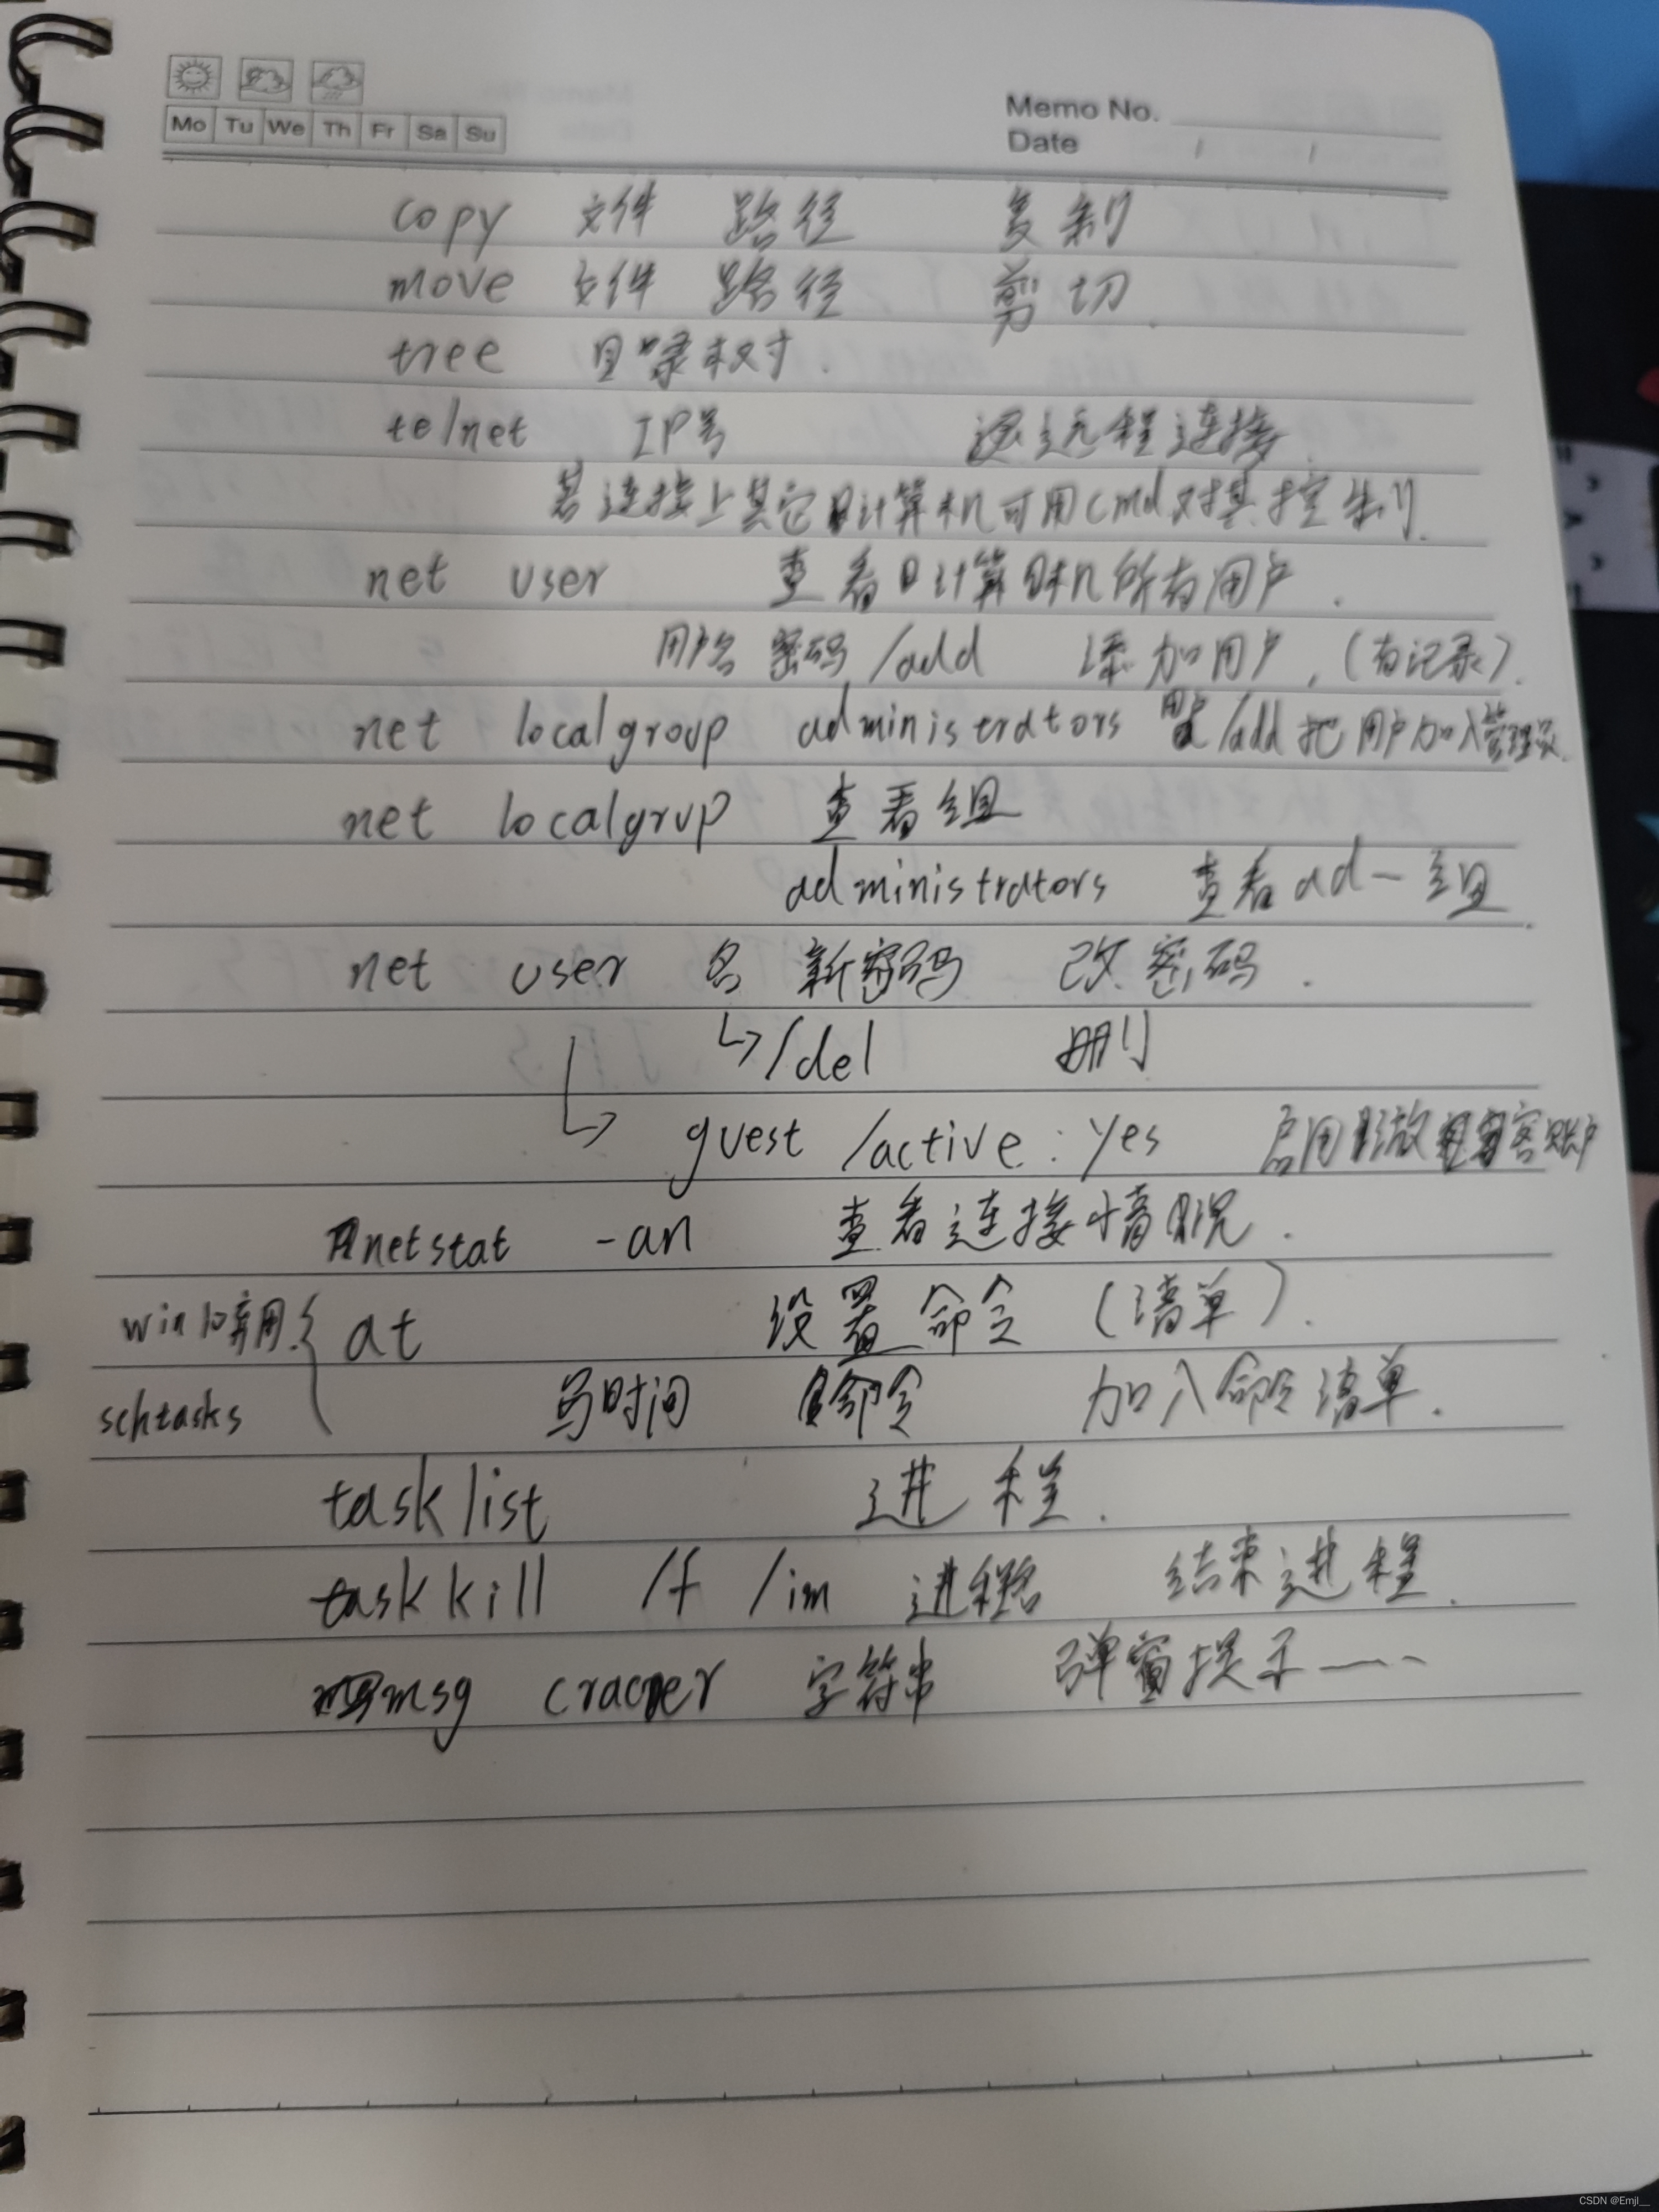 Mo Tu We Th Fr Sa Su
Memo No.
Date / /
copy 文件 路径 复制
move 文件 路径 剪切.
tree 目录树.
telnet IP号 远程连接.
若连接上其它计算机可用cmd对其控制.
net user 查看计算机所有用户.
用户名 密码 /add 添加用户.(有记录).
net localgroup administrators /add 把用户加入管理员.
net localgrup 查看组
administrators 查看ad一组.
net user 名 新密码 改密码.
↳/del 删
↳ guest /active:yes 启用 客账户
netstat -an 查看连接情况.
win10弃用.{ at 设置命令(清单).
schtasks 写时间 命令 加入命令清单.
tasklist 进程.
taskkill /f /im 进程名 结束进程.
msg 字符串 弹窗提示一..
CSDN @Emjl__